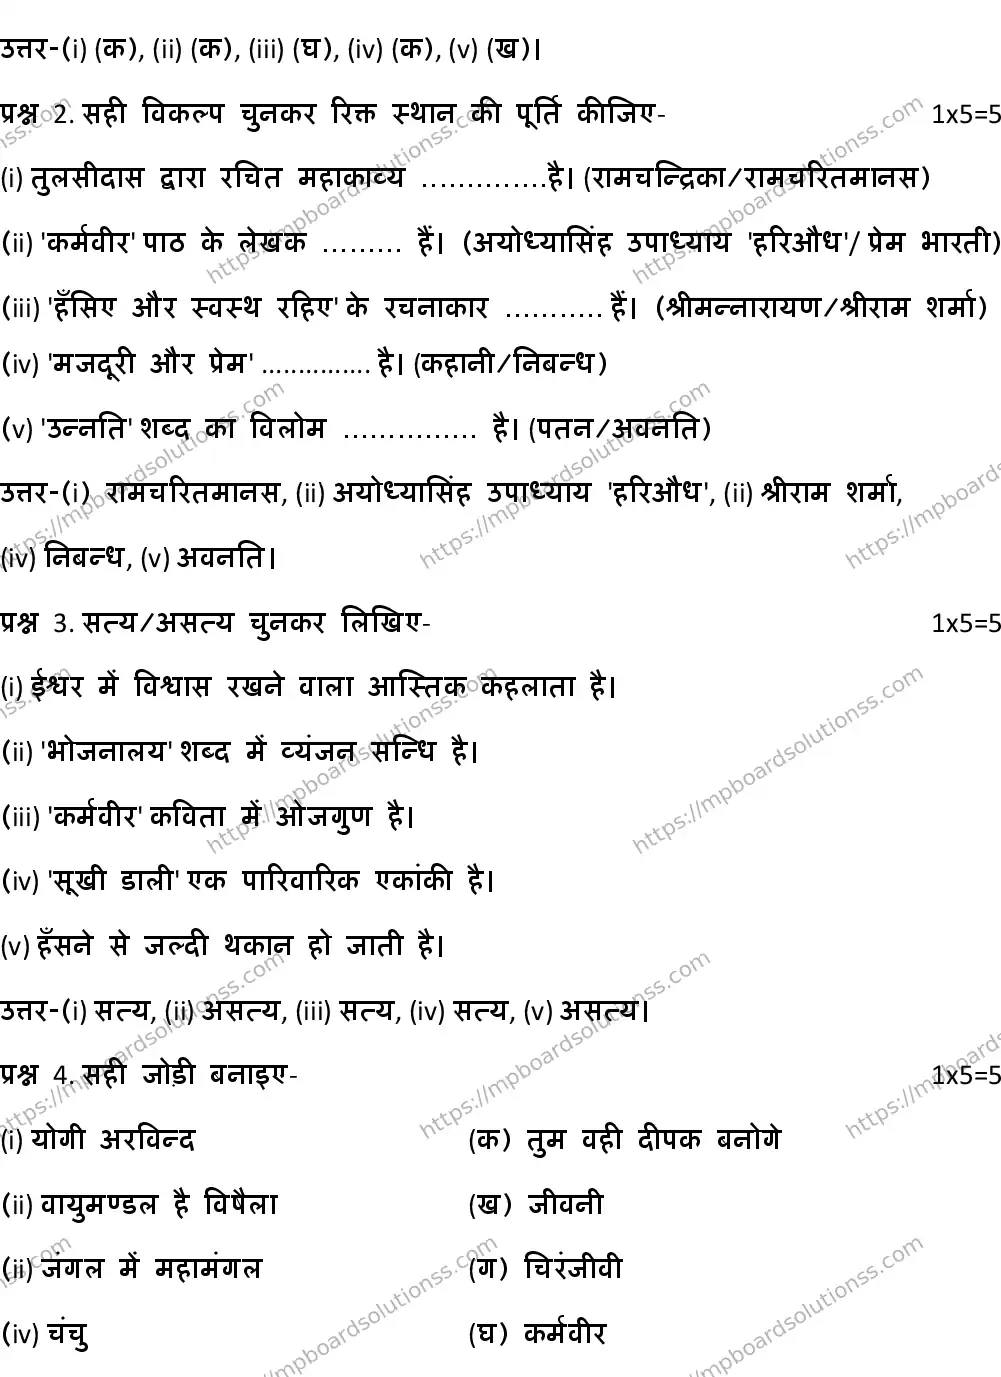 उत्तर-(i) (क), (ii) (क), (iii) (घ), (iv) (क), (v) (ख)।
प्रश्न 2. सही विकल्प चुनकर रिक्त स्थान की पूर्ति कीजिए- 1x5=5
(i) तुलसीदास द्वारा रचित महाकाव्य ..............है। (रामचन्द्रिका/रामचरितमानस)
(ii) 'कर्मवीर' पाठ के लेखक ......... हैं। (अयोध्यासिंह उपाध्याय 'हरिऔध'/ प्रेम भारती)
(iii) 'हँसिए और स्वस्थ रहिए' के रचनाकार ........... हैं। (श्रीमन्नारायण/श्रीराम शर्मा)
(iv) 'मजदूरी और प्रेम' ............... है। (कहानी/निबन्ध)
(v) 'उन्नति' शब्द का विलोम ............... है। (पतन/अवनति)
उत्तर-(i) रामचरितमानस, (ii) अयोध्यासिंह उपाध्याय 'हरिऔध', (ii) श्रीराम शर्मा,
(iv) निबन्ध, (v) अवनति।
प्रश्न 3. सत्य/असत्य चुनकर लिखिए- 1x5=5
(i) ईश्वर में विश्वास रखने वाला आस्तिक कहलाता है।
(ii) 'भोजनालय' शब्द में व्यंजन सन्धि है।
(iii) 'कर्मवीर' कविता में ओजगुण है।
(iv) 'सूखी डाली' एक पारिवारिक एकांकी है।
(v) हँसने से जल्दी थकान हो जाती है।
उत्तर-(i) सत्य, (ii) असत्य, (iii) सत्य, (iv) सत्य, (v) असत्य।
प्रश्न 4. सही जोड़ी बनाइए- 1x5=5
(i) योगी अरविन्द (क) तुम वही दीपक बनोगे
(ii) वायुमण्डल है विषैला (ख) जीवनी
(ii) जंगल में महामंगल (ग) चिरंजीवी
(iv) चंचु (घ) कर्मवीर
https://mpboardsolutionss.com